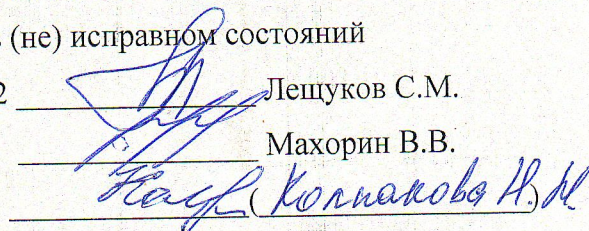 (не) исправном состояний
2 ____________ Лещуков С.М.
____________ Махорин В.В.
____________ (Колпакова Н.М.)